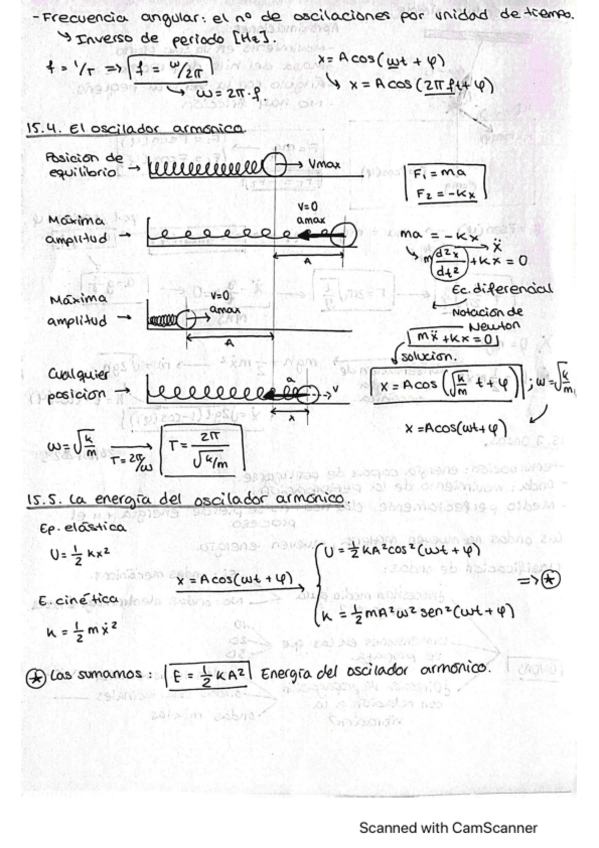 - Frecuencia angular: el nº de oscilaciones por unidad de tiempo.
↳ Inverso de periodo [Hz].
f = 1/T => f = ω/2π
x = A cos (ωt + φ)
↳ ω = 2π·f
↳ x = A cos (2πft + φ)
15.4. El oscilador armónico
Posición de equilibrio →
Vmax
F₁ = ma
F₂ = -Kx
Máxima amplitud →
v=0
amax
A
ma = -Kx
↳ m d²x/dt² + Kx = 0
ẍ
Ec. diferencial
Máxima amplitud →
v=0
amax
A
Notación de Newton
mẍ + Kx = 0
solución.
Cualquier posición →
a
v
x
x = A cos (√k/m t + φ) ; ω = √k/m
x = A cos(ωt + φ)
ω = √k/m
T = 2π/ω
T = 2π/√k/m
15.5. La energía del oscilador armónico.
Ep. elástica
U = 1/2 kx²
x = A cos (ωt + φ)
U = 1/2 kA² cos² (ωt + φ)
=> ⊛
E. cinética
k = 1/2 mẋ²
k = 1/2 mA² ω² sen² (ωt + φ)
⊛ Las sumamos: E = 1/2 KA² Energía del oscilador armónico.
Scanned with CamScanner